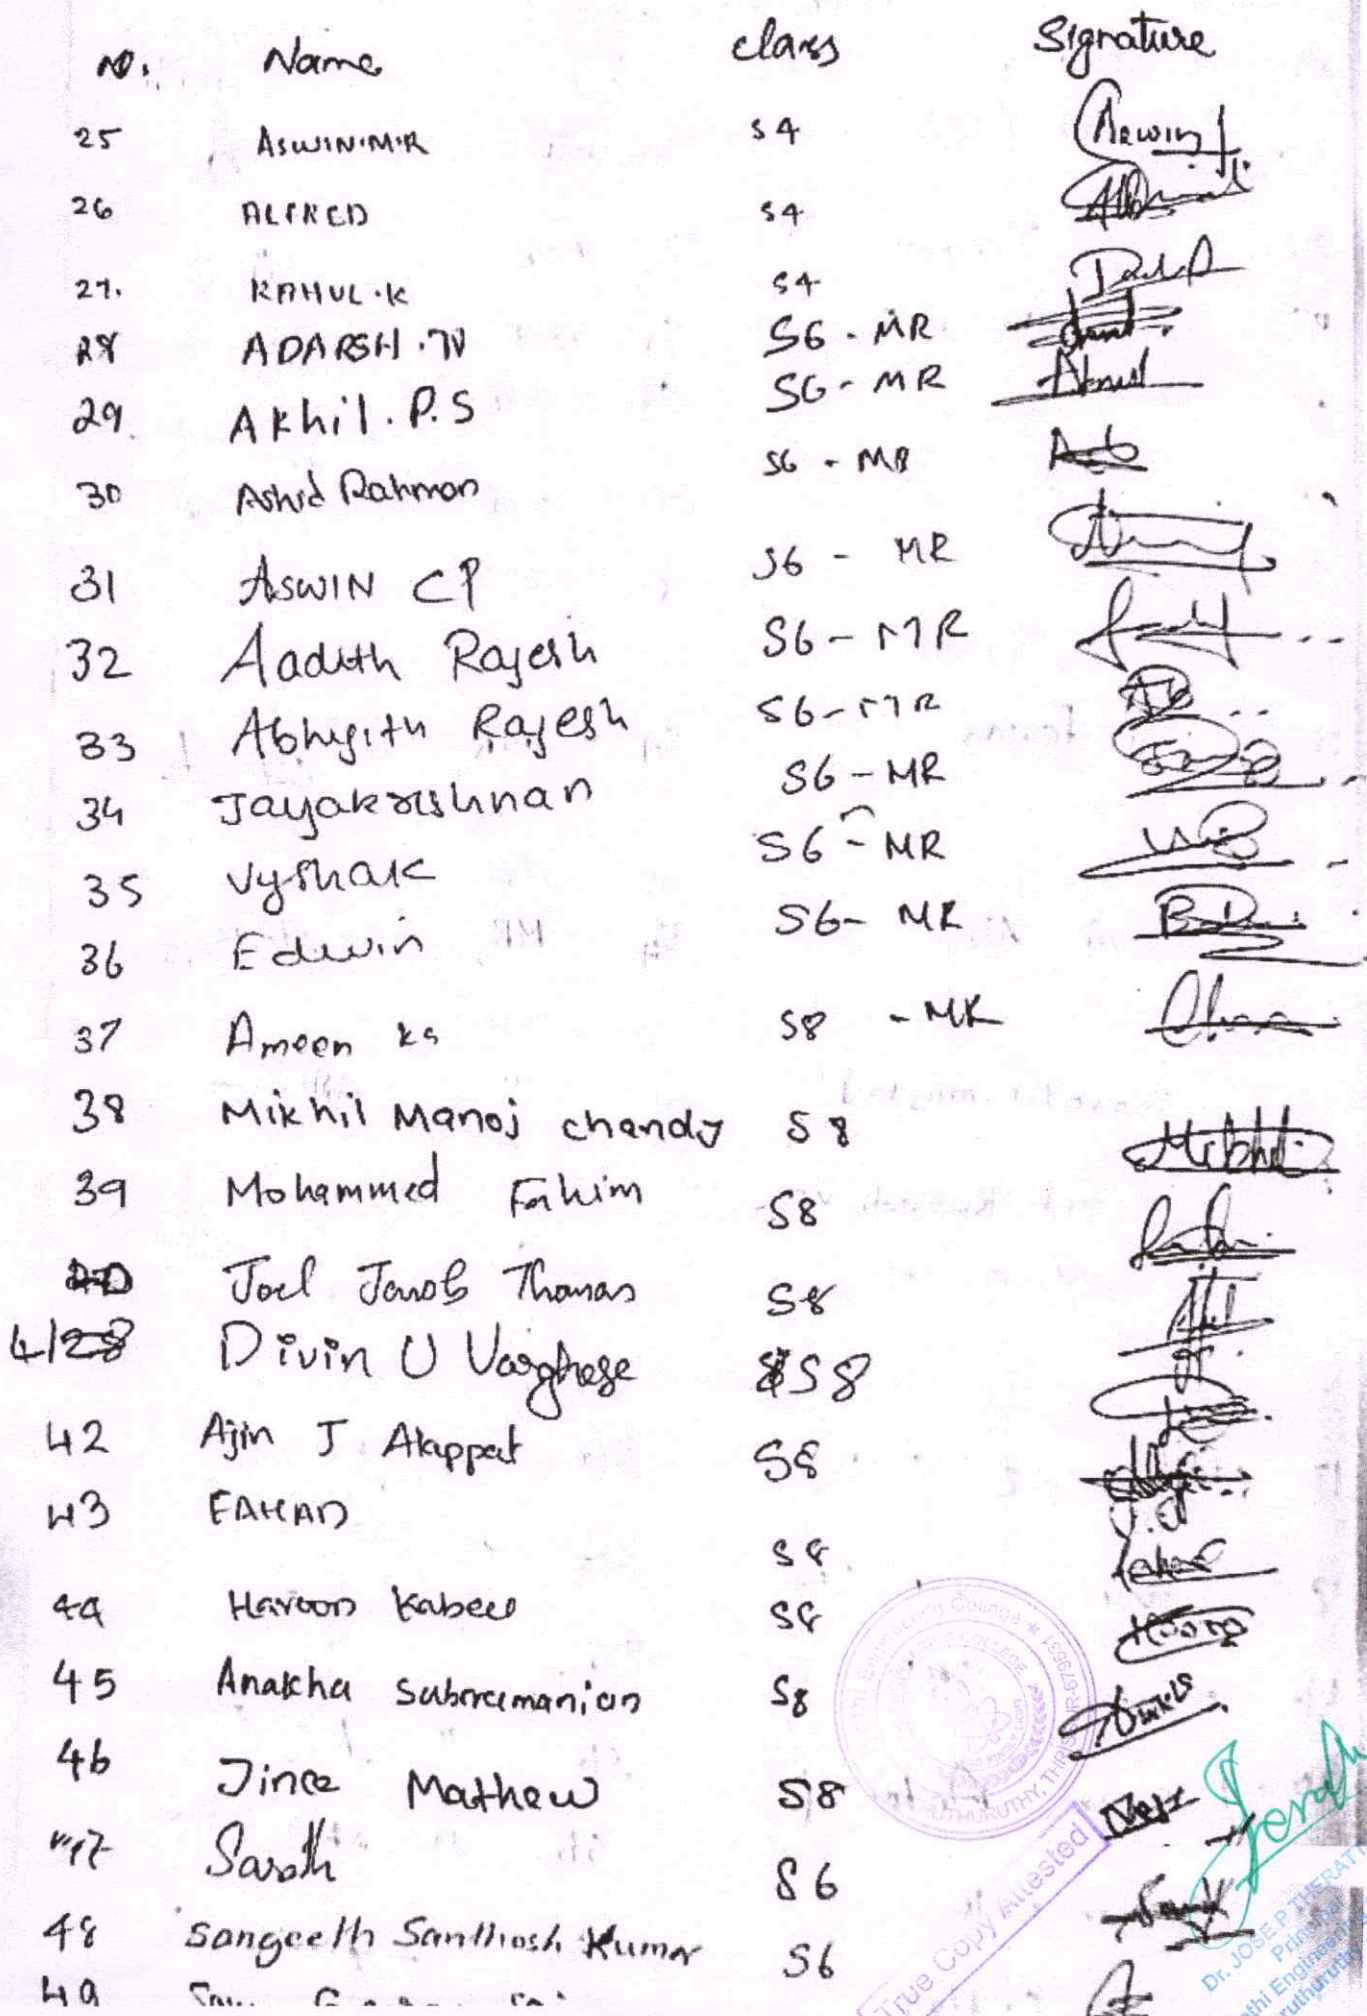 No. Name class Signature
25 ASWIN.M.R S4
26 ALFRED S4
27. RAHUL.K S4
28 ADARSH.TV S6 - MR
29. Akhil.P.S S6 - MR
30 Ashid Rahman S6 - MR
31 ASWIN CP S6 - MR
32 Aadith Rajesh S6 - MR
33 Abhijith Rajesh S6 - MR
34 Jayakrishnan S6 - MR
35 Vyshak S6 - MR
36 Edwin S6 - MR
37 Ameen KS S8 - MR
38 Mikhil Manoj chandy S8
39 Mohammed Fahim S8
40 Joel Jacob Thomas S8
41 Divin U Varghese S8
42 Ajin J Alappat S8
43 FAHAD S8
44 Haroon Kabeer S8
45 Anakha Subramanian S8
46 Jince Mathew S8
47 Sarath S6
48 Sangeeth Santhosh Kumar S6
49
True Copy Attested
Dr. JOSE P THERATT
Principal